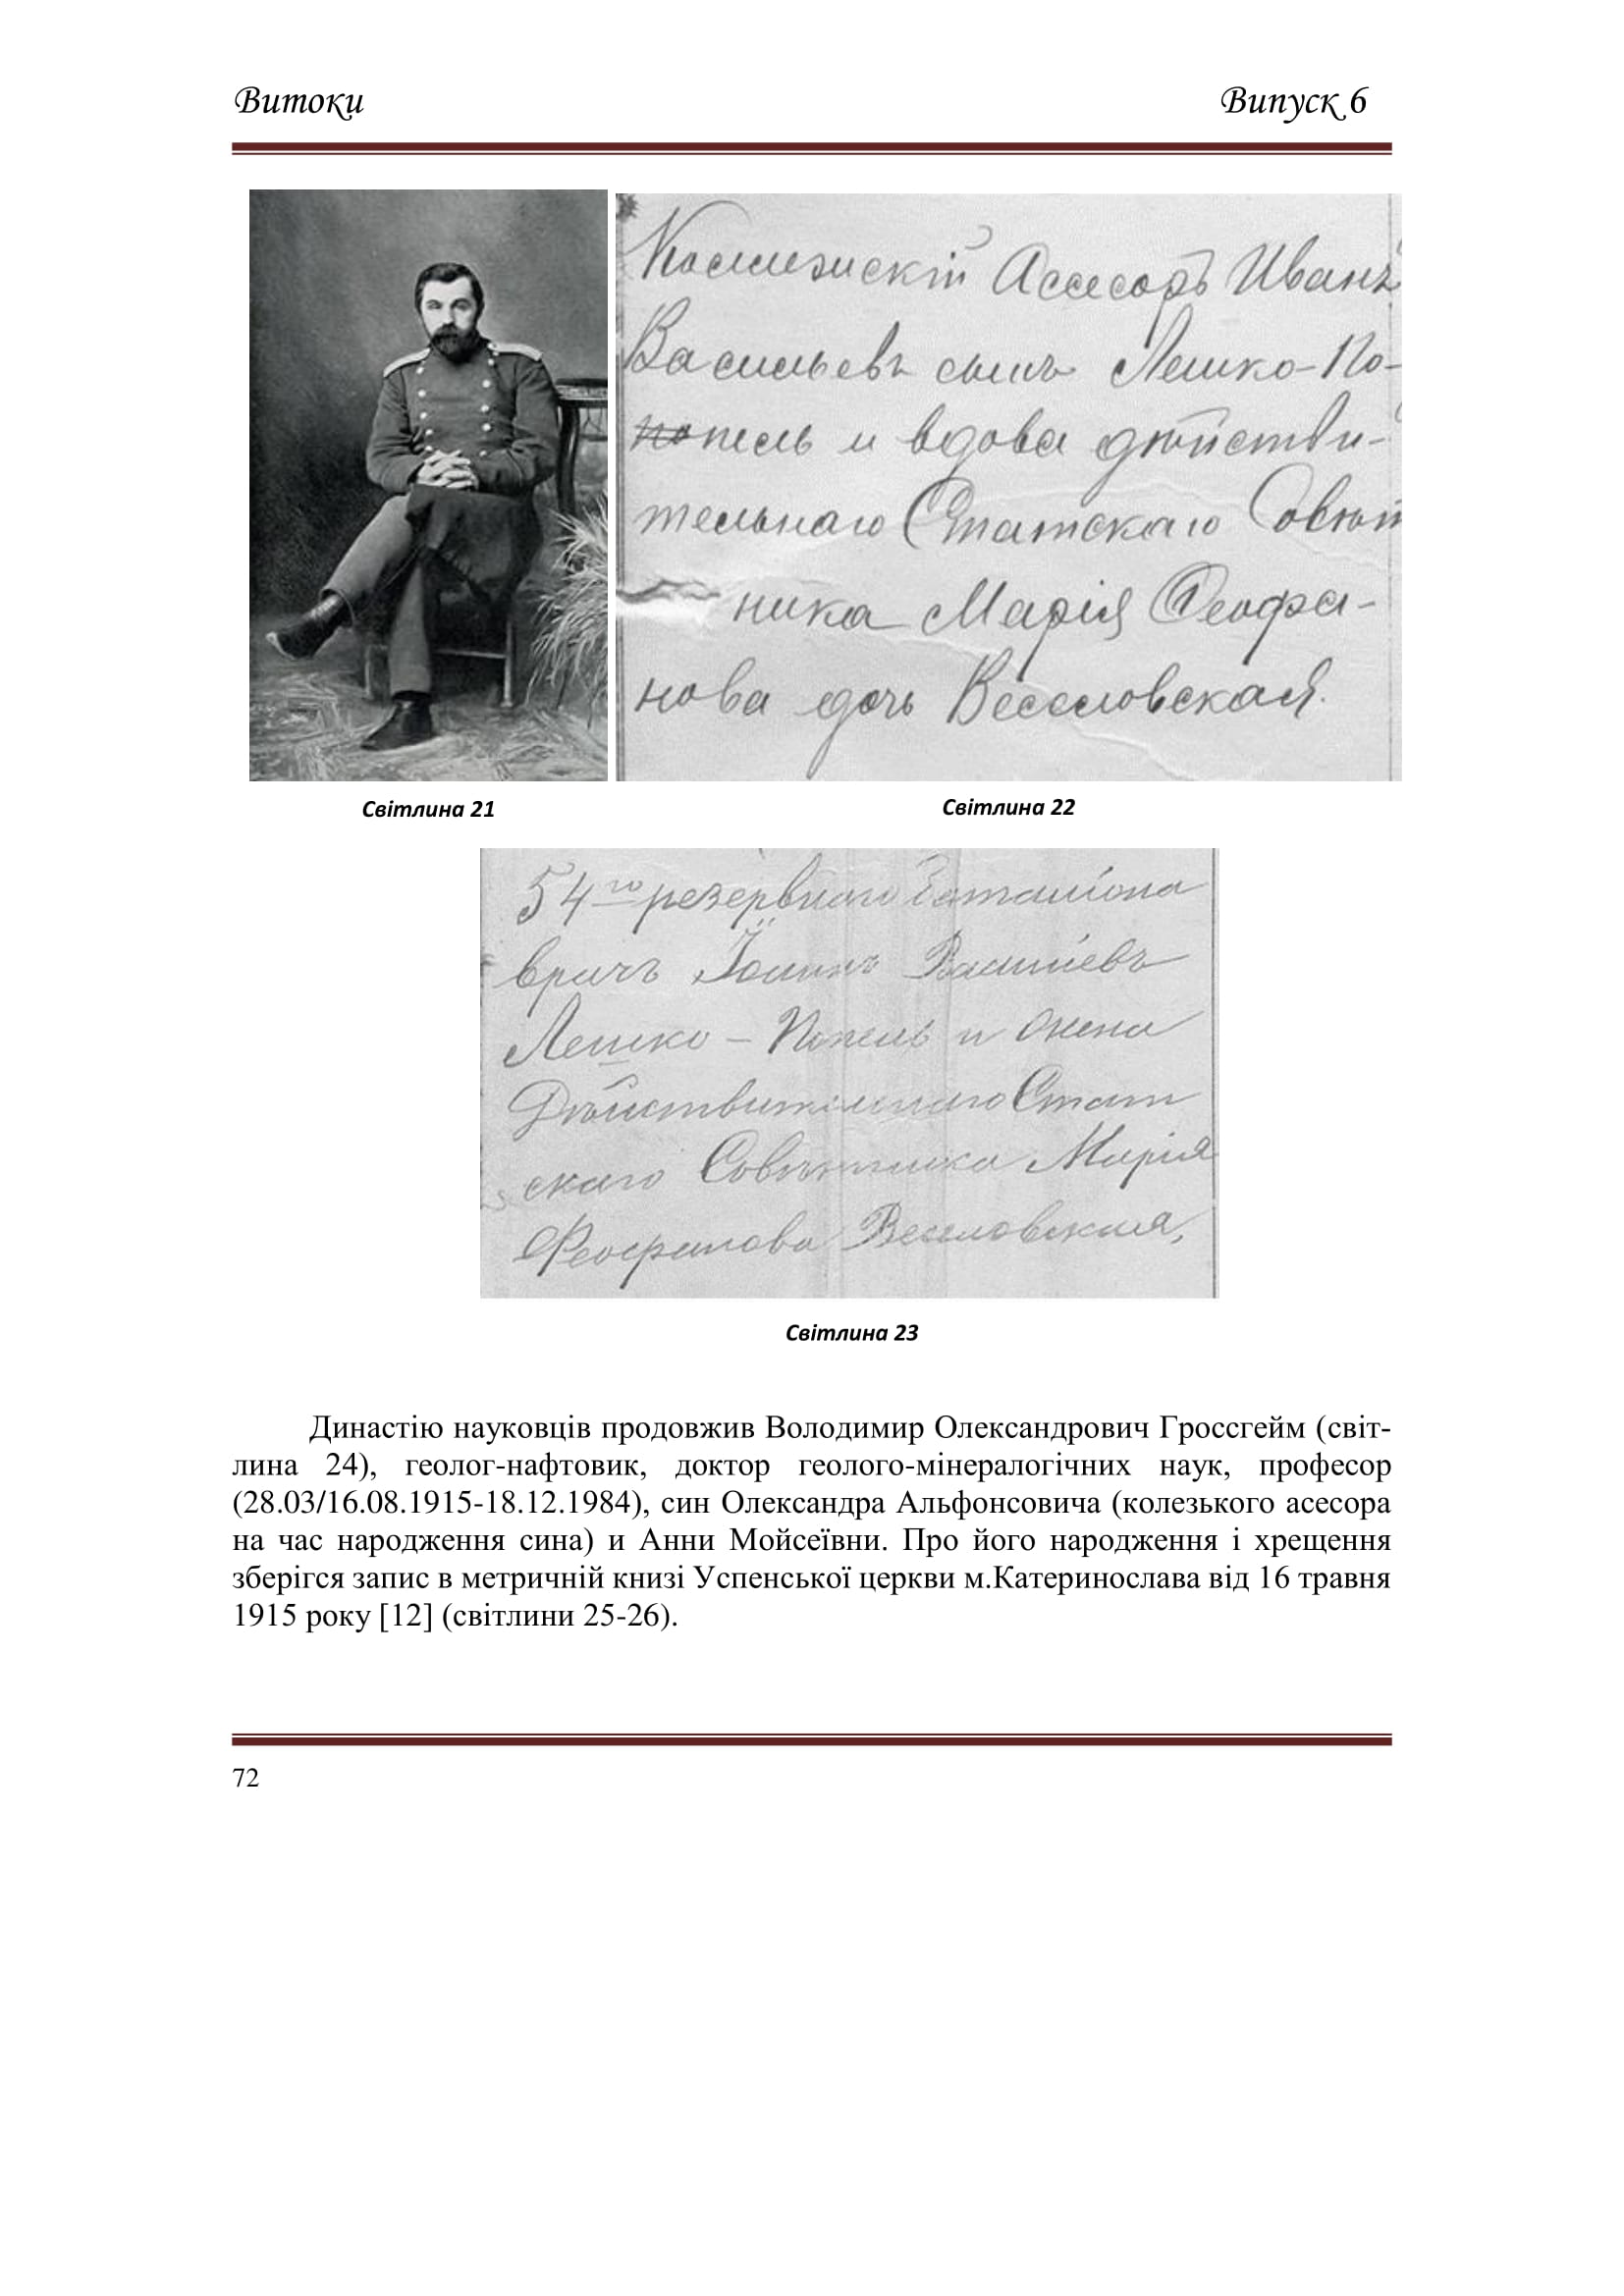 Витоки Випуск 6
Коллежскій Ассесоръ Иванъ
Васильевъ сынъ Лешко-По-
попель и вдова дѣйстви-
тельнаго Статскаго Совѣт
ника Марія Феофа-
нова дочь Веселовская.
Світлина 21
Світлина 22
54го резервнаго баталіона
врачъ Іоаннъ Василіевъ
Лешко-Попель и жена
Дѣйствительнаго Стат
скаго Совѣтника Марія
Феофанова Веселовская,
Світлина 23
Династію науковців продовжив Володимир Олександрович Гроссгейм (світ-
лина 24), геолог-нафтовик, доктор геолого-мінералогічних наук, професор
(28.03/16.08.1915-18.12.1984), син Олександра Альфонсовича (колезького асесора
на час народження сина) и Анни Мойсеївни. Про його народження і хрещення
зберігся запис в метричній книзі Успенської церкви м.Катеринослава від 16 травня
1915 року [12] (світлини 25-26).
72